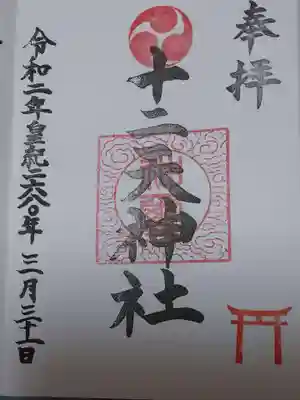 奉拝
十二天神社
令和二年皇紀二六八〇年 三月日